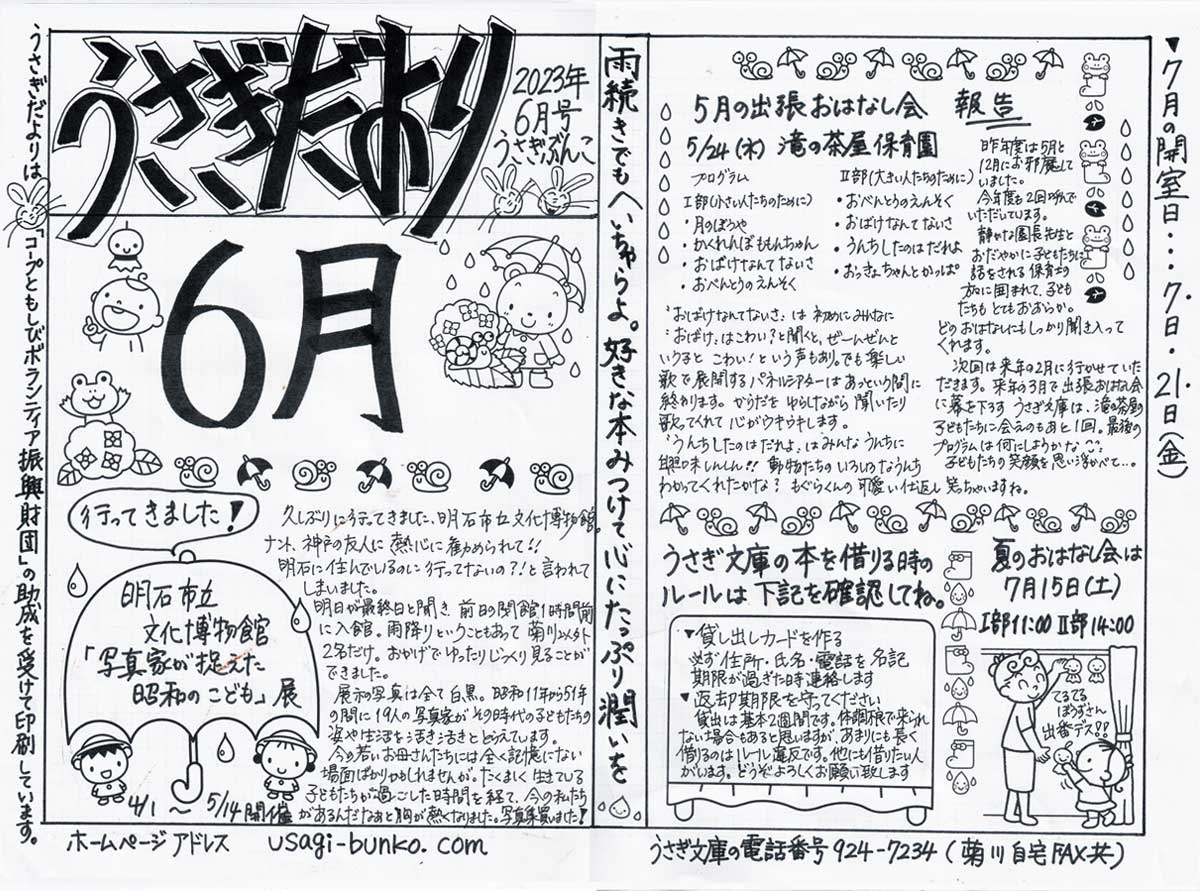 うさぎだより
2023年
6月号
うさぎぶんこ
うさぎだよりは「コープともしびボランティア振興財団」の助成を受けて印刷しています。
6月
行ってきました!
明石市立
文化博物館
「写真家が捉えた
昭和のこども」展
4/1〜5/14開催
久しぶりに行ってきました、明石市立文化博物館。
ナント、神戸の友人に熱心に勧められて!!
明石に住んでいるのに行ってないの?!と言われて
しまいました。
明日が最終日と聞き、前日の閉館1時間前
に入館。雨降りということもあって菊川以外
2名だけ。おかげでゆったりじっくり見ることが
できました。
展示の写真は全て白黒。昭和11年から51年
の間に19人の写真家がその時代の子どもたちの
姿や生活を活き活きととらえています。
今の若いお母さんたちには全く記憶にない
場面ばかりかもしれませんが、たくましく生きている
子どもたちが過ごした時間を経て、今の私たち
があるんだなあと胸が熱くなりました。写真集買いました!
ホームページアドレス usagi-bunko.com
雨続きでもへいちゃらよ。好きな本みつけて心にたっぷり潤いを
5月の出張おはなし会 報告
5/24(水) 滝の茶屋保育園
プログラム
I部(小さい人たちのために)
・月のぼうや
・かくれんぼももんちゃん
・おばけなんてないさ
・おべんとうのえんそく
II部(大きい人たちのために)
・おべんとうのえんそく
・おばけなんてないさ
・うんちしたのはだれよ
・おっきょちゃんとかっぱ
昨年度は5月と
12月にお邪魔して
いました。
今年度も2回呼んで
いただいています。
静かな園長先生と
おだやかに子どもたちに
話をされる保育士の
方に囲まれて、子ども
たちもとてもおおらか。
どのおはなしにもしっかり聞き入って
くれます。
次回は来年の2月に行かせていた
だきます。来年の3月で出張おはなし会
に幕を下ろすうさぎ文庫は、滝の茶屋の
子どもたちに会えるのもあと1回。最後の
プログラムは何にしようかな
子どもたちの笑顔を思い浮かべて…。
"おばけなんてないさ〟は初めにみんなに
"おばけ、はこわい?と聞くと、ぜーんぜんと
いう名と こわい!という声もあり。でも楽しい
歌で展開するパネルシアターはあっという間に
終わります。からだをゆらしながら聞いたり
歌ってくれて心がウキウキします。
"うんちしたのはだれよ〟はみんなうんちに
興味しんしん!! 動物たちのいろいろなうんち
わかってくれたかな? もぐらくんの可愛い仕返し笑っちゃいますね。
うさぎ文庫の本を借りる時の
ルールは下記を確認してね。
▼貸し出しカードを作る
必ず住所・氏名・電話を名記
期限が過ぎた時連絡します
▼返却期限を守ってください
貸出は基本2週間です。体調不良で来られ
ない場合もあると思いますが、あまりにも長く
借りるのはルール違反です。他にも借りたい人
がいます。どうぞよろしくお願い致します
夏のおはなし会は
7月15日(土)
I部11:00 II部14:00
てるてる
ぼうずさん
出番デス!!
うさぎ文庫の電話番号 924-7234 (菊川自宅FAX共)
▼7月の開室日…7日・21日(金)